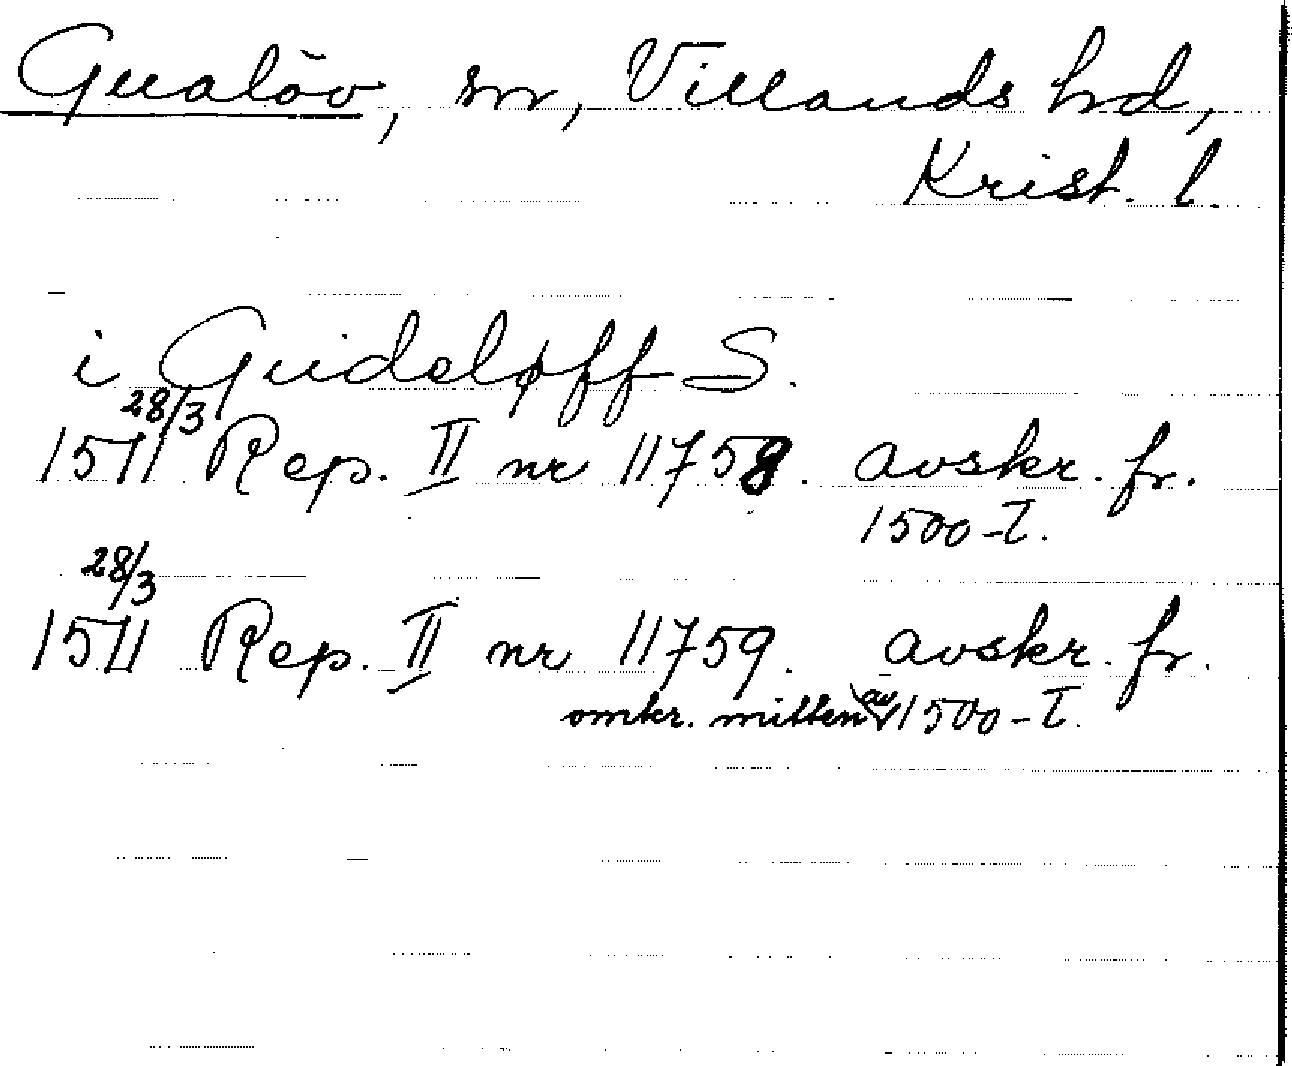 Gualöv, sn, Villands hd,
Krist. l.
i Gudeløff S.
28/3
1511 Rep. II nr 11758. avskr. fr.
1500-T.
28/3
1511 Rep. II nr 11759. avskr. fr.
omkr. mitten av 1500-T.